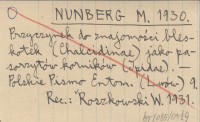 O NUNBERG M. 1930.
Przyczynek do znajomości bles-
kotek (Chalcididae) jako pa-
sorzytów korników (Ipidae). —
Polskie Pismo Entom. (Lwów) 9.
Rec.: Roszkowski W. 1931.